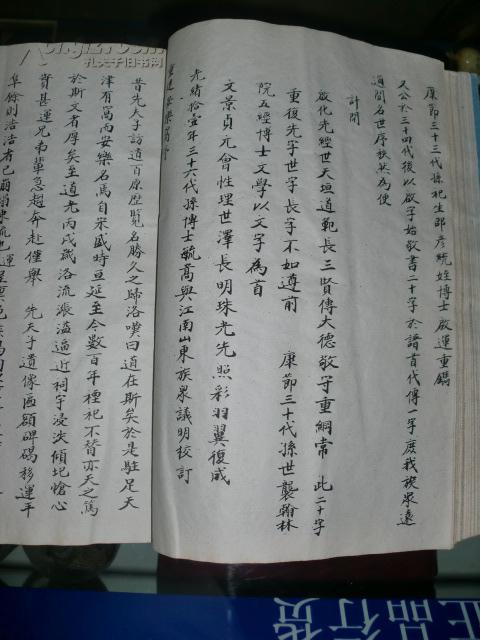 康節三十三代孫祀生邵彥統姪博士啟運重鐫
又公於三十四代後以啟字始敬書二十字於譜首代傳一字庶我族眾遠
通聞名世序秩然為便
計開
啟化先經世天垣道範長三賢傳大德敬守重綱常 此二十字
重復先字世字長字不如遵前 康節三十代孫世襲翰林
院五經博士文學以文字為首
文景貞元會性理世澤長明珠光先照彩羽翼復咸
光緒拾壹年三十六代孫博士毓高與江南山東族眾議明校訂
重建安樂窩
昔先夫子訪道百原歷覽名勝久之歸洛嘆曰道在斯矣於是駐足天
津有窩而安樂名焉自宋盛時亘延至今數百年禋祀不替亦天之篤
於斯文者厚矣至道光丙戌歲洛流漲溢逼近祠宇浸浃傾圮愴心
賁甚運兄弟輩急趨奔赴僅舉 先夫子遺像匾額碑碣移運平
阜餘則浩浩者已
正品行货
孔夫子旧书网